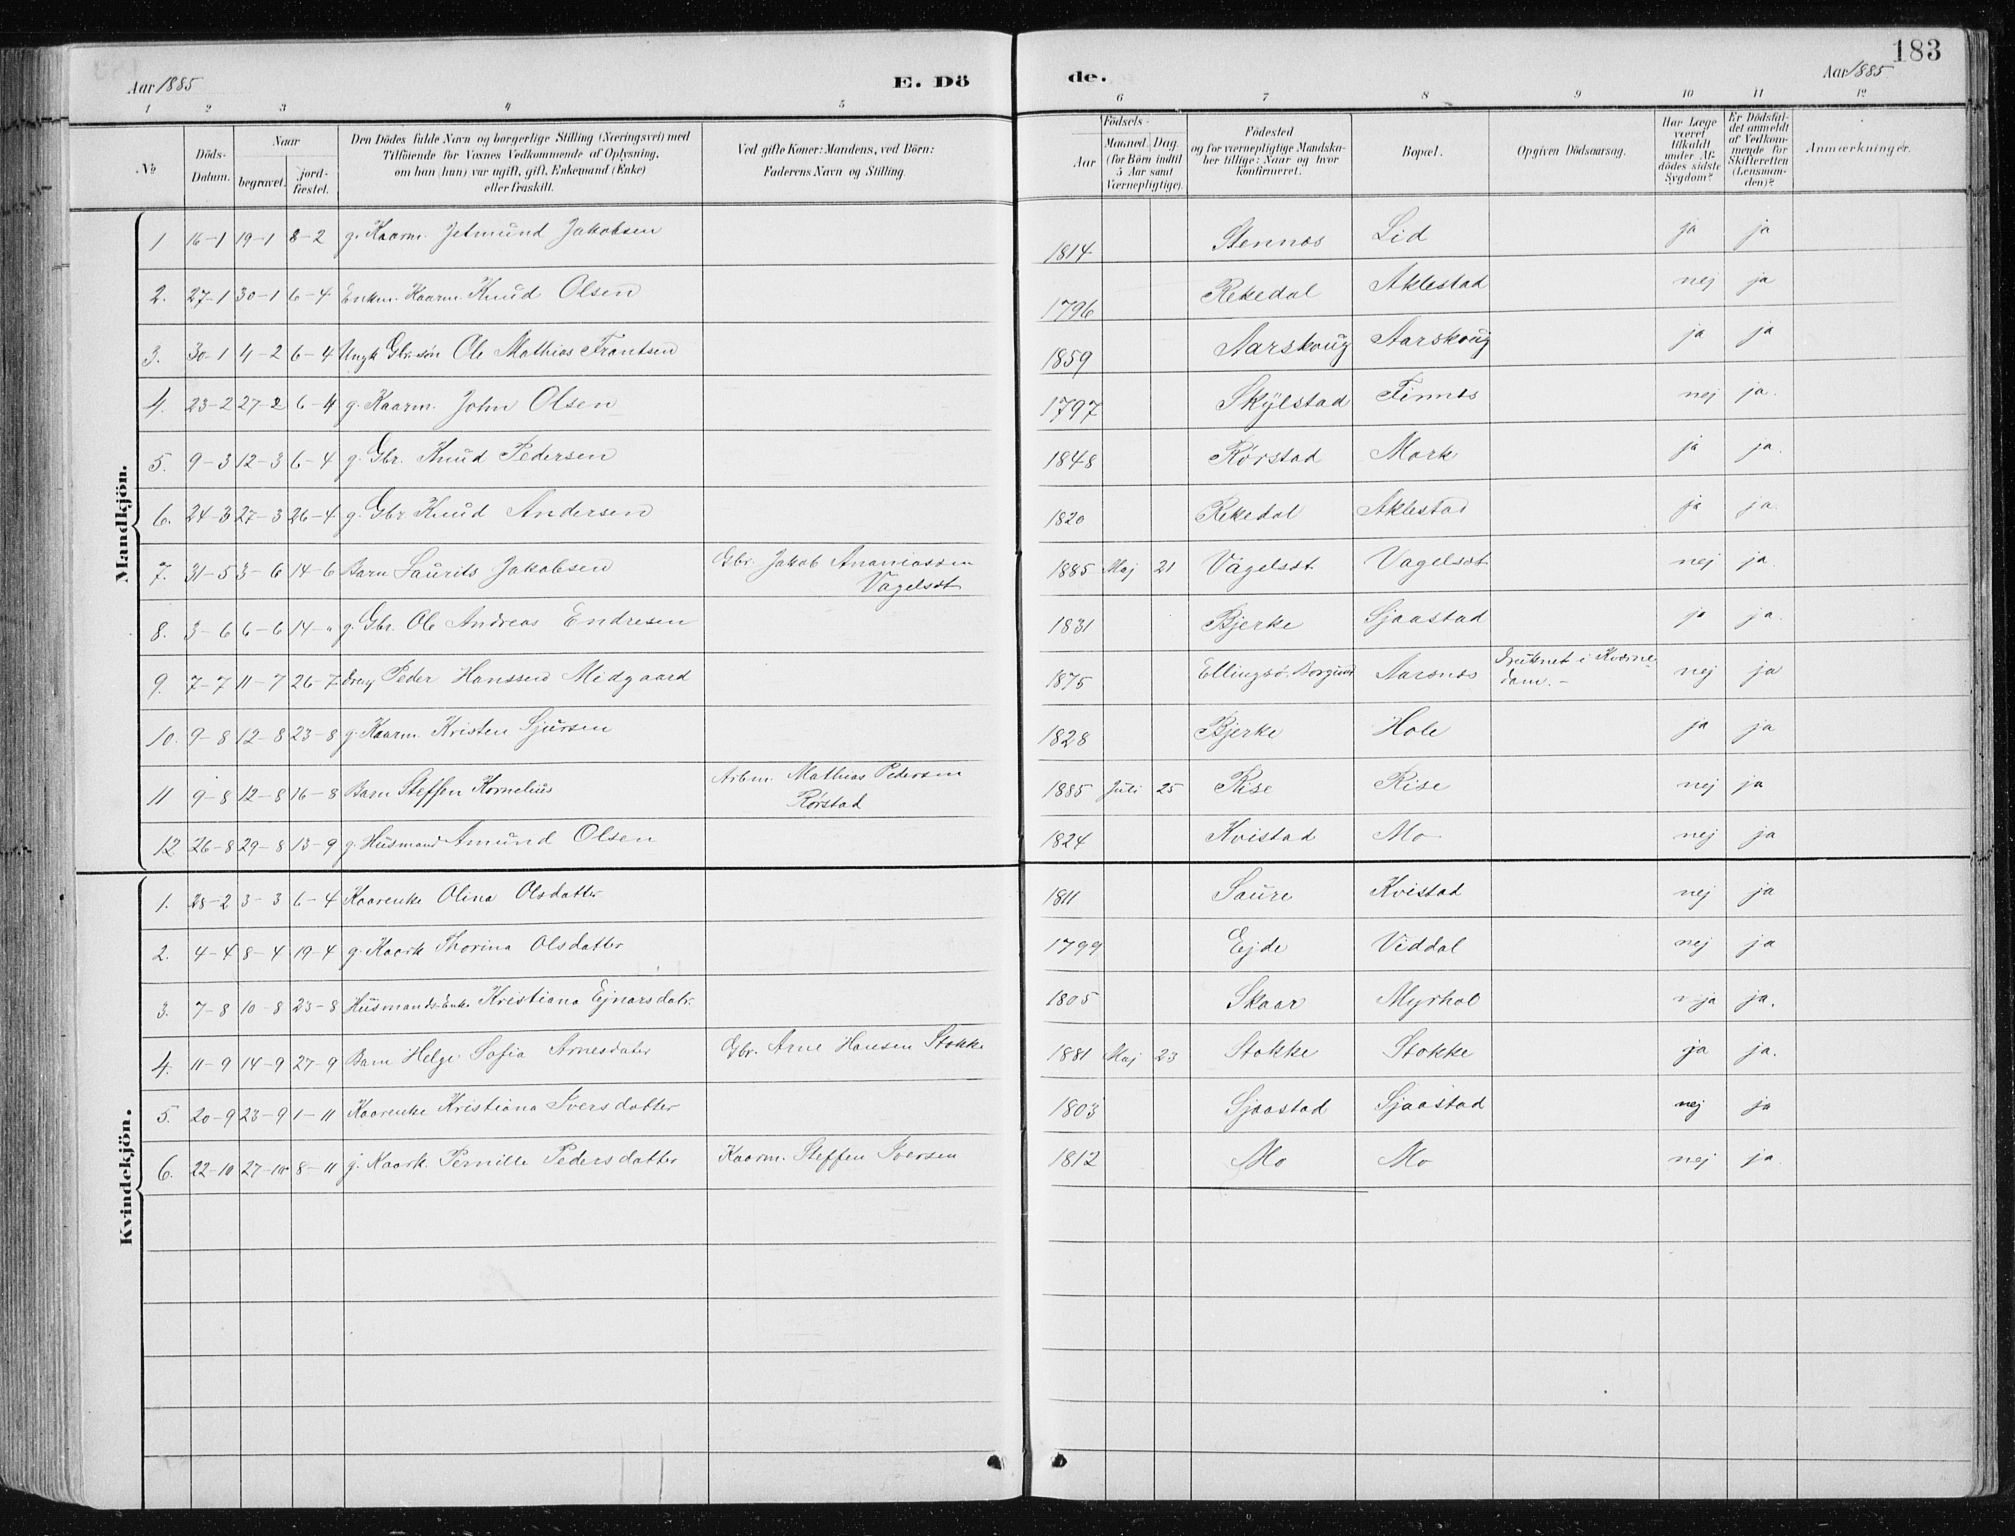 183
Aar 1885 E. Dö de. Aar 1885
1 2 3 4 5 6 7 8 9 10 11 12
№ Döds-Datum. Naar begravet. jord-fæstet. Den Dödes fulde Navn og borgerlige Stilling (Næringsvei) med Tilföiende for Voxnes Vedkommende af Oplysning, om han (hun) var ugift, gift, Enkemand (Enke) eller fraskilt. Ved gifte Koner: Mandens, ved Börn: Faderens Navn og Stilling. Födsels- Aar Maaned. Dag. (for Börn indtil 5 Aar samt Værnepligtige). Födested og for værnepligtige Mandskaber tillige: Naar og hvor konfirmeret. Bopæl. Opgiven Dödsaarsag. Har Læge været tilkaldt under Afdödes sidste Sygdom? Er Dödsfaldet anmeldt af Vedkommende for Skifteretten (Lensmanden)? Anmærkninger.
Mandkjön.
1 16-1 19-1 8-2 g. Kaarm. Jetmund Jakobsen 1814 Stennes Lid ja ja
2. 27-1 30-1 6-4 Enkm. Kaarm. Knud Olsen 1796 Rekedal Aklestad nej ja
3. 30-1 4-2 6-4 Ungk Gbr.søn Ole Mathias Frantsen 1859 Aarskoug Aarskoug ja ja
4. 23-2 27-2 6-4 g. Kaarm. John Olsen 1797 Skylstad Finnes nej ja.
5. 9-3 12-3 6-4 g. Gbr. Knud Pedersen 1848 Rørstad Mork ja ja.
6. 24-3 27-3 26-4 g. Gbr Knud Andersen 1820 Rekedal Aklestad ja ja.
7. 31-5 3-6 14-6 Barn Laurits Jakobsen Gbr. Jakob Ananiassen Vagelsøt 1885 Maj 21 Vagelsøt Vagelsøt nej ja.
8. 3-6 6-6 14-" g. Gbr. Ole Andreas Endresen 1831 Bjerke Sjaastad ja ja.
9. 7-7 11-7 26-7 Dreng Peder Hanssen Midgaard 1875 Ellingsø. Borgund Aarsnes Druknet i Kværne dam.- nej ja
10. 9-8 12-8 23-8 g. Kaarm. Kristen Sjursen 1828 Bjerke Hole ja ja
11 9-8 12-8 16-8 Barn Steffen Kornelius Arbm. Mathias Pedersen Rørstad 1885 Juli 25 Rise Rise nej ja
12 26-8 29-8 13-9 g. Husmand Amund Olsen 1824 Kvistad Mo nej ja
Kvindekjön.
1. 28-2 3-3 6-4 Kaarenke Olina Olsdatter 1811 Saure Kvistad nej ja
2. 4-4 8-4 19-4 g. Kaark Thorina Olsdatter 1799 Ejde Viddal nej ja
3. 7-8 10-8 23-8 Husmands-Enke Kristiana Ejnarsdatr. 1805 Skaar Myrhol ja ja.
4. 11-9 14-9 27-9 Barn Helge Sofia Arnesdater Gbr. Arne Hansen Stokke 1881 Maj 23 Stokke Stokke ja ja.
5. 20-9 23-9 1-11 Kaarenke Kristiana Iversdatter 1803 Sjaastad Sjaastad nej ja
6. 22-10 27-10 8-11 g. Kaark. Pernille Pedersdatter Kaarm. Steffen Iversen 1812 Mo Mo nej ja.